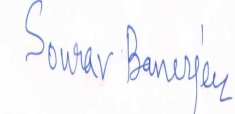 Sourav Banerjee